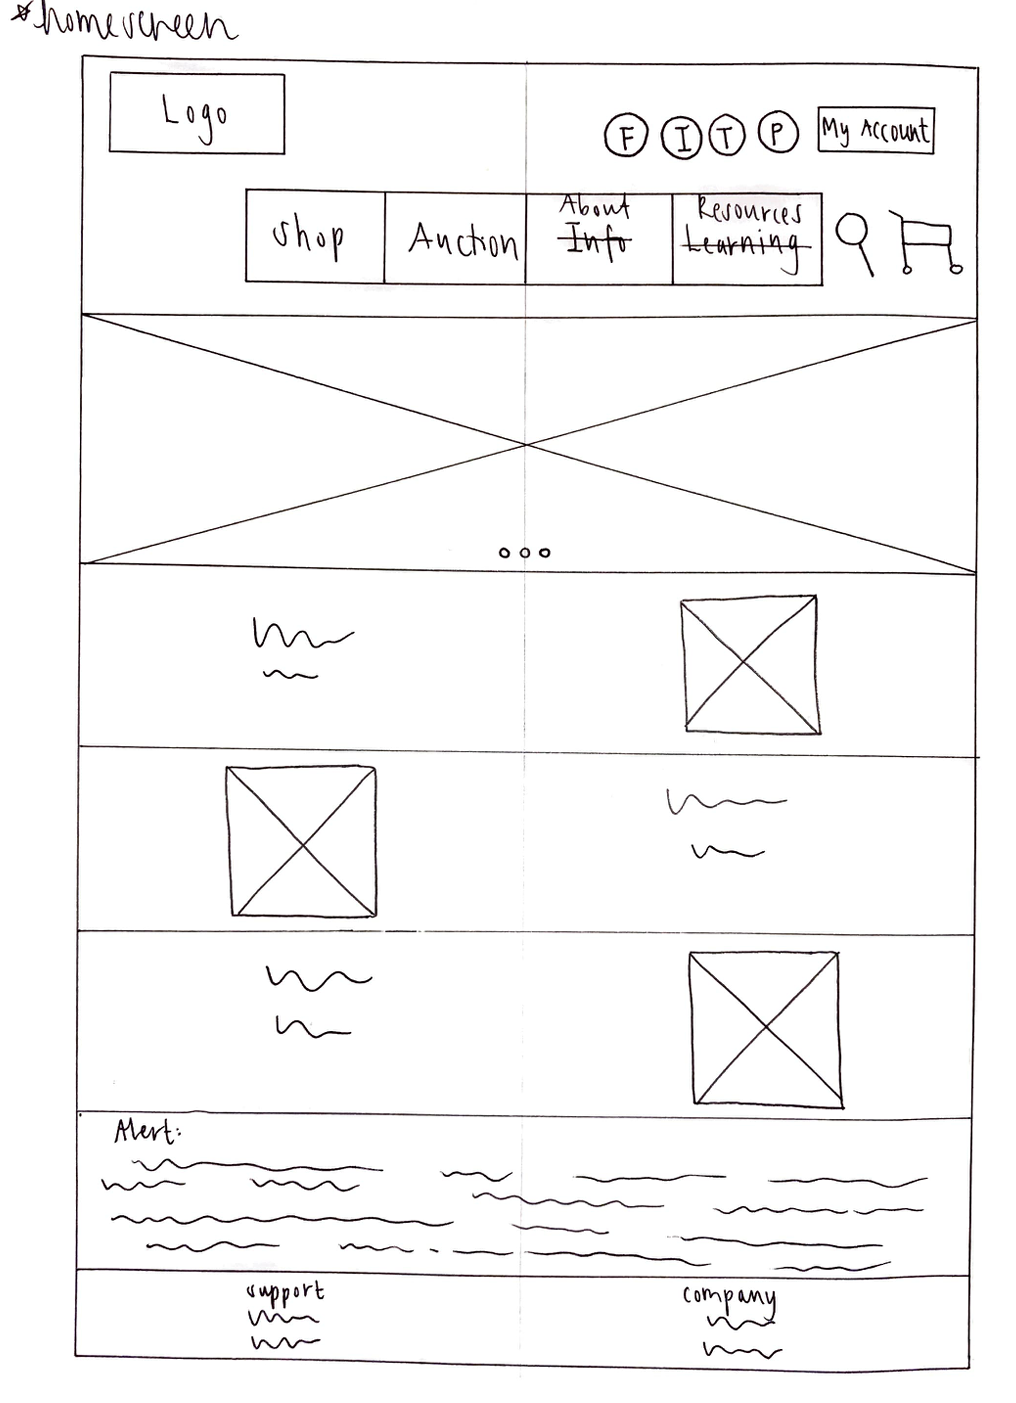 *homescreen
Logo
F I T P My Account
Shop Auction About Resources
Info Learning
Alert:
support company